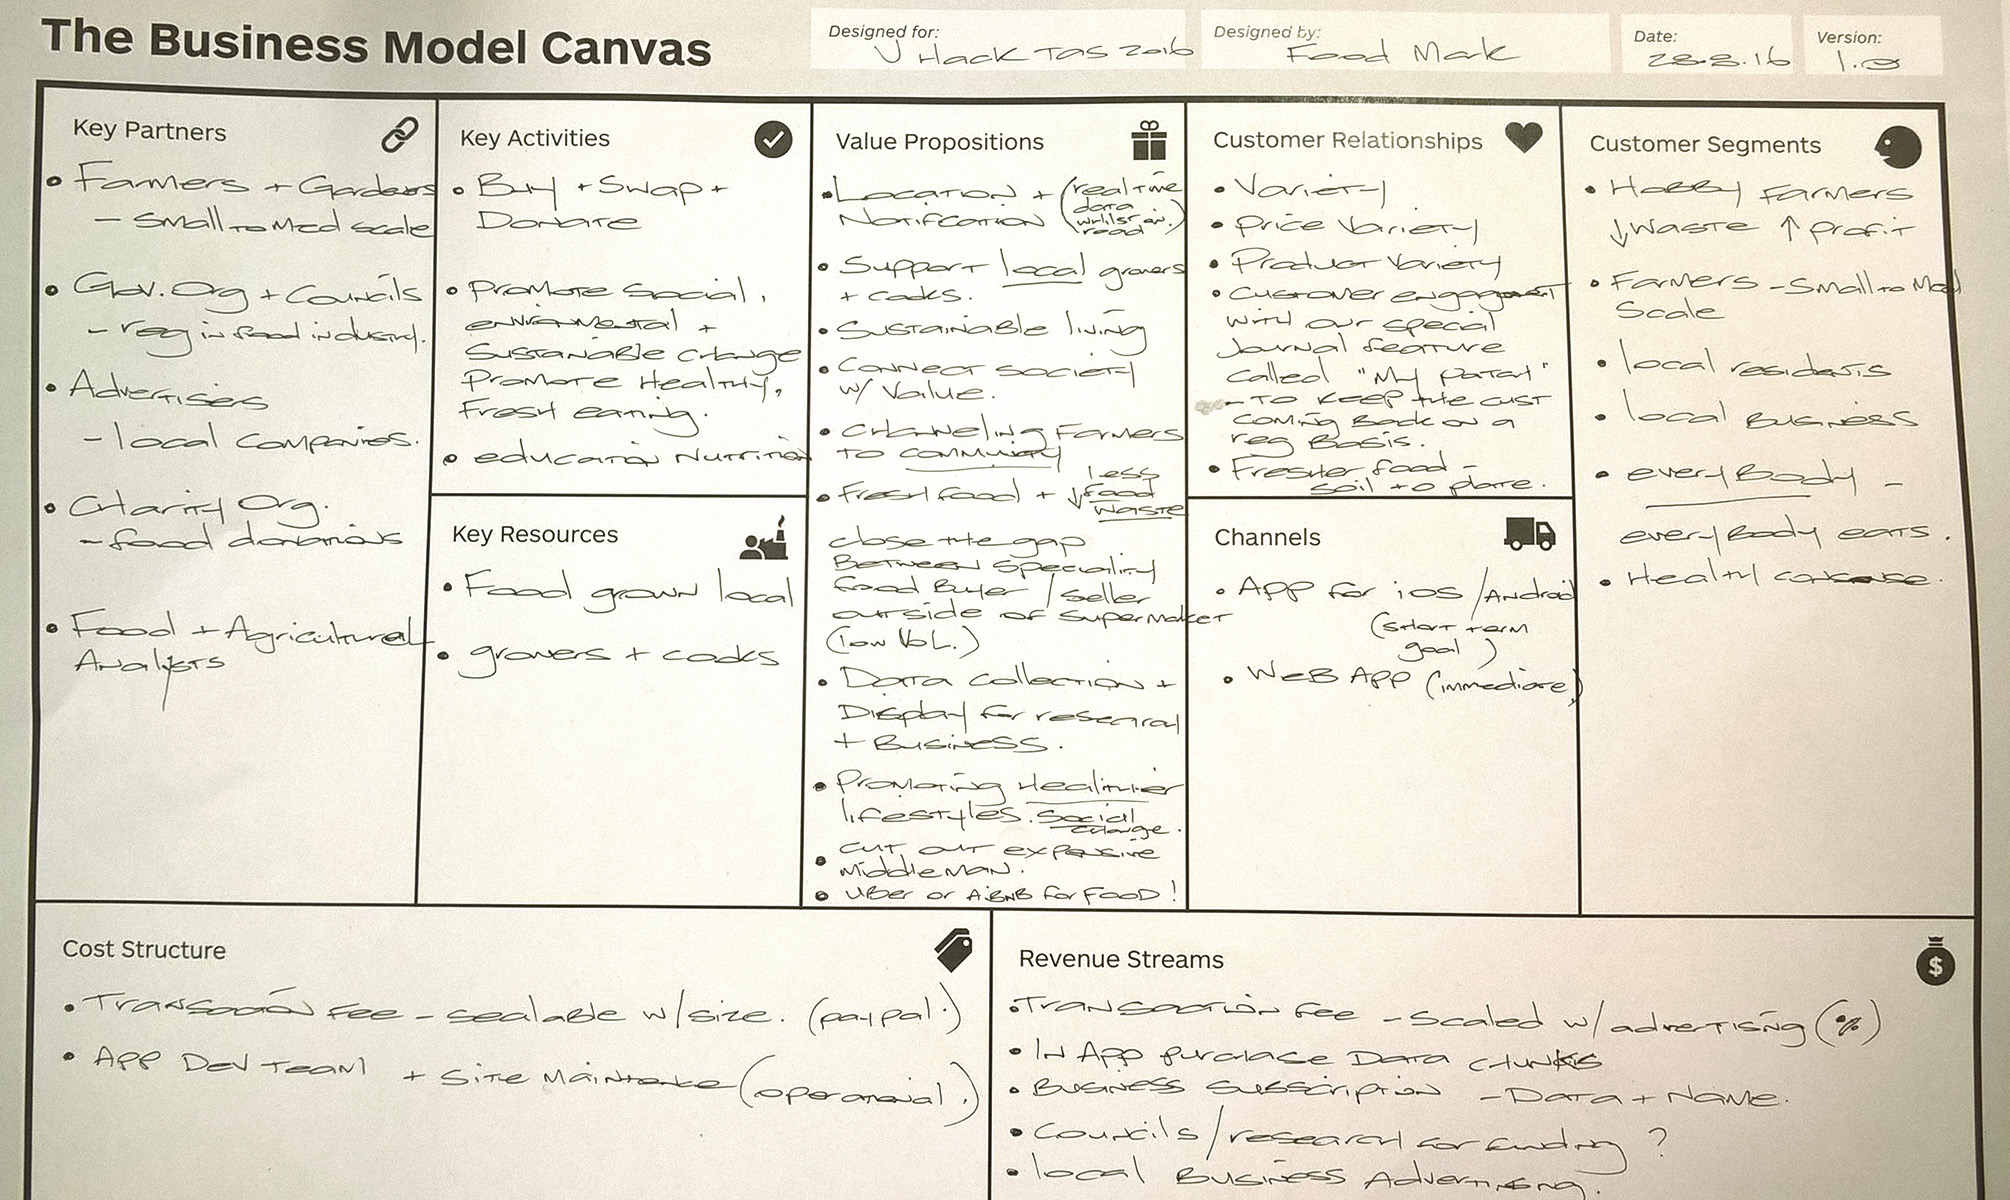 The Business Model Canvas
Designed for:
U Hack TAS 2016
Designed by:
Food Mark
Date:
28.8.16
Version:
1.0
Key Partners
• Farmers + Gardeners
- small to med scale
• Gov. Org + Councils
- reg in food industry.
• Advertisers
- local companies.
• Charity Org.
- food donations
• Food + Agricultural
Analysts
Key Activities
• Buy + Swap +
Donate
• promote social,
environmental +
sustainable change
Promote Healthy,
Fresh eating.
• education Nutrition
Key Resources
• Food grown local
• growers + cooks
Value Propositions
• Location + (real time
Notification data
whilst on
road)
• Support local growers
+ cooks.
• Sustainable living
• Connect society
w/ Value.
• Channeling Farmers
to community
• Fresh food + ↓ less
food
waste
close the gap
Between speciality
food Buyer / seller
outside of supermarket
(low Vol.)
• Data collection +
Display for research
+ Business.
• Promoting Healthier
lifestyles. social
change.
• cut out expensive
middleman.
• UBER or AirBNB for FOOD!
Customer Relationships
• Variety
• price Variety
• Product Variety
• customer engagement
with our special
Journal feature
called "My patch"
- to keep the cust
coming Back on a
reg Basis.
• Fresher food -
soil to plate.
Channels
• App for ios / Android
(short term
goal)
• WEB APP (immediate)
Customer Segments
• Hobby Farmers
↓ Waste ↑ profit
• Farmers - small to Med
Scale
• local residents
• local Business
• everyBody -
everyBody eats.
• Health
Cost Structure
• Transaction Fee - scalable w/size. (paypal.)
• App Dev Team + site Maintenance (operational.)
Revenue Streams
• Transaction fee - scaled w/ advertising (%)
• In App purchase Data chunks
• Business subscription - Data + Name.
• Councils / research for funding ?
• local Business Advertising.